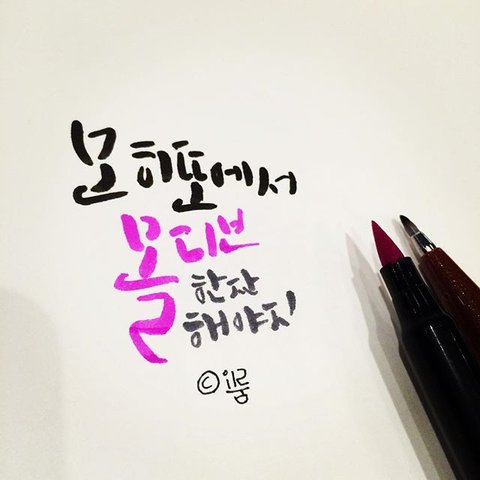 모히또에서
몰디브
한잔
해야지
© 이룸